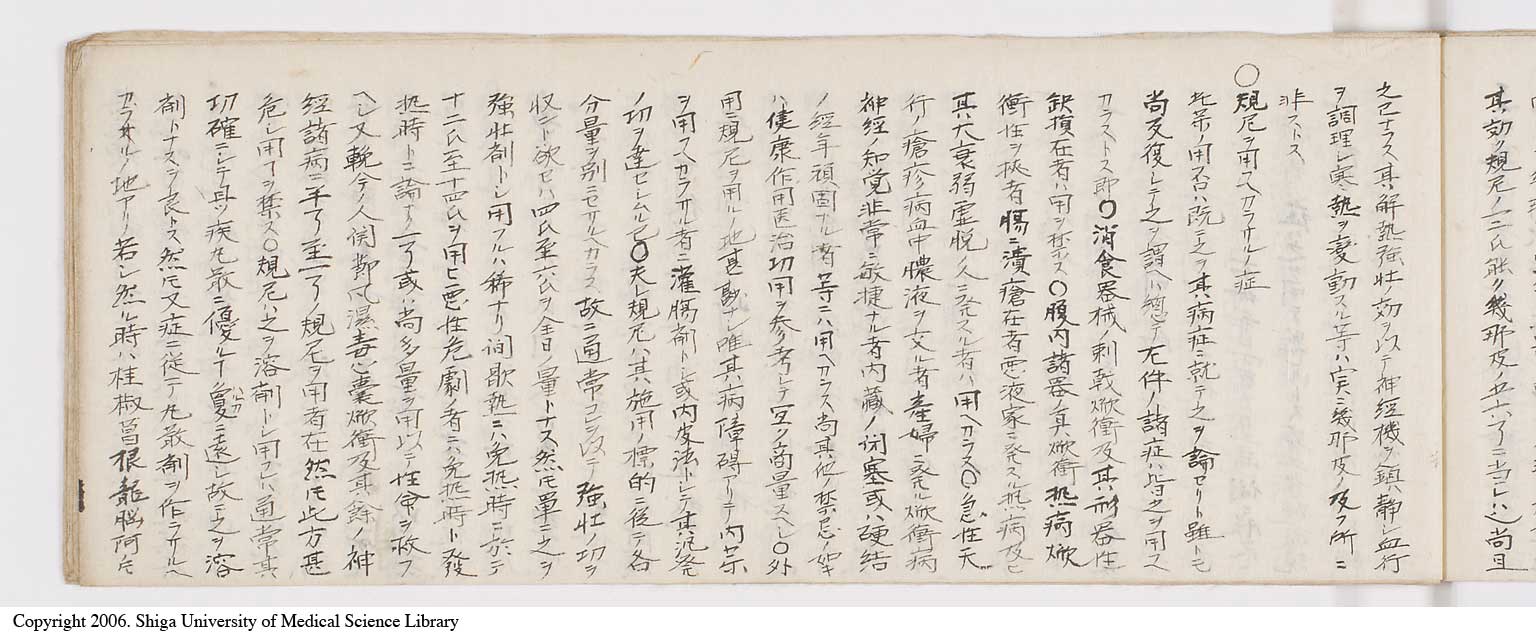 其効ヲ規尼ノ一二氏能ク幾那皮五六ヲニ当レハ也尚且
之已ナラス其解熱強壮効ヲ以テ神経機ヲ鎮静シ血行
ヲ調理シ寒熱ヲ変動スル等ハ実ニ幾那皮ノ及フ所ニ
非ストス
〇規尼ヲ用ユヘカラサルノ症
此薬ノ用否ハ既ニ之ヲ其病症ニ就テ之ヲ論セリト雖トモ
尚反復シテ之ヲ謂ヘハ総テ左件ノ諸症ハ皆之ヲ用ユヘ
カラストス即〇消食器械刺戟焮衝及其形器性
欠損在者ハ用ヲ禁ス〇腹内諸器ノ真焮衝热病焮
衝性ヲ挟者腸ニ潰瘡在者悪液家ニ発スル热病及ヒ
其大衰弱虚脱ノ人ニ発スル者ハ用ヘカラス〇急性天
行ノ瘡疹病血中膿液ヲ交ル者産婦ニ発ル焮衝病
神経ノ知覚非常ニ敏捷ナル者内蔵ノ閉塞或ハ硬結
ノ経年頑固ナル者等ニハ用ヘカラス尚其他ノ禁忌ノ件
ハ健康作用医治功用ヲ参考シテ宜ク商量スヘシ〇外
用ニ規尼ヲ用ルノ地甚尠ナシ唯其病障碍アリテ内
ヲ用ユヘカラサル者ニ灌腸剤トシ或内皮法トシテ其
ノ功ヲ達セシムル已〇夫レ規尼ハ其施用ノ標的ニ従テ各
分量ヲ別ニセサルヘカラス故ニ通常コレヲ以テ強壮ノ功ヲ
収ント欲セハ四氏至六氏ヲ全日ノ量トナス然モ単ニ之ヲ
強壮剤トシ用フルハ稀ナリ間歇熱ニハ免热時ニ於テ
十二氏至十四氏ヲ用ヒ悪性危劇ノ者ニハ免热時ト發
热時トニ論ナク或ハ尚多量ヲ用以テ性命ヲ救フ
ヘシ又輓今ノ人関節風湿毒心嚢焮衝及其餘ノ神
経諸病ニ至 規尼ヲ用者在然モ此方甚
危シ用ヲ禁ス〇規尼ハ之ヲ溶剤トシ用フレハ通常其
功確ニシテ且ツ疾丸散ニ優ルヿ 遠シ故ニ之ヲ溶
剤トナスヲ良トス然モ又症ニ従テ丸散剤ヲ作ラサルヘ
カラサルノ地アリ若シ然ル時ハ桂椒菖根龍脳阿片